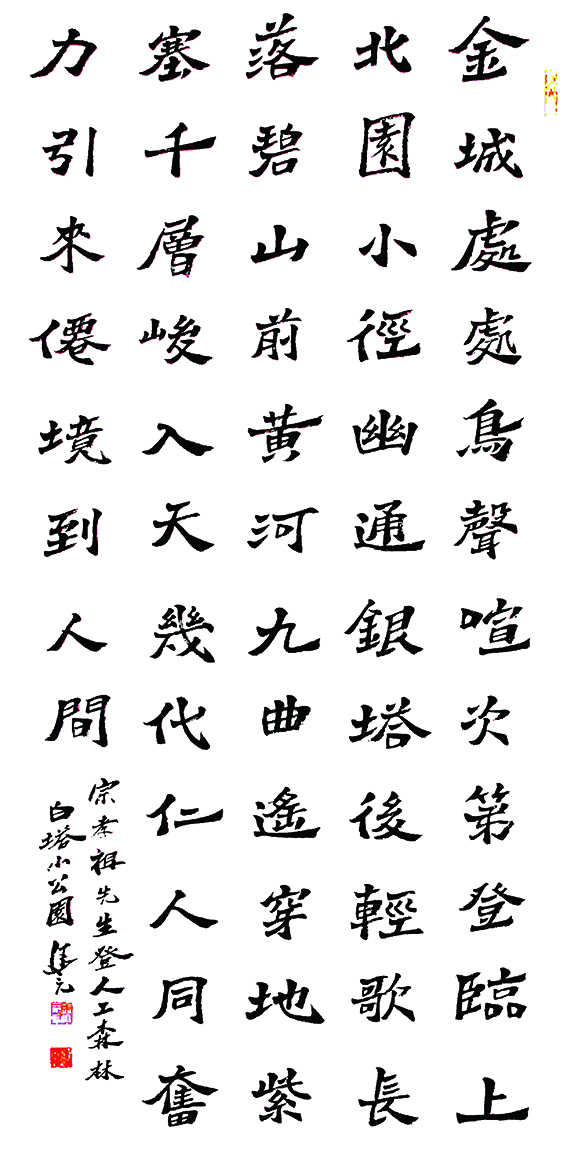 金城處處鳥聲喧次第登臨上
北園小徑幽通銀塔後輕歌長
落碧山前黃河九曲遙穿地紫
塞千層峻入天幾代仁人同奮
力引來僊境到人間
宗孝祖先生登人工森林
白塔小公園